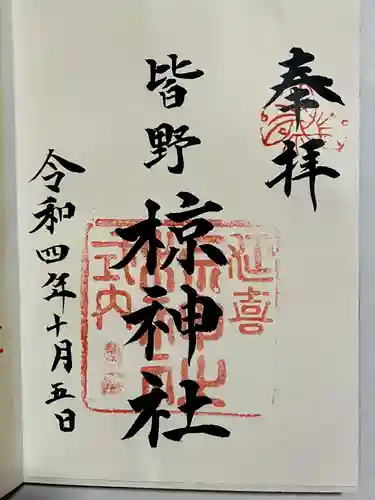 奉拝
皆野
椋神社
令和四年十月五日
延喜
式内
椋神社